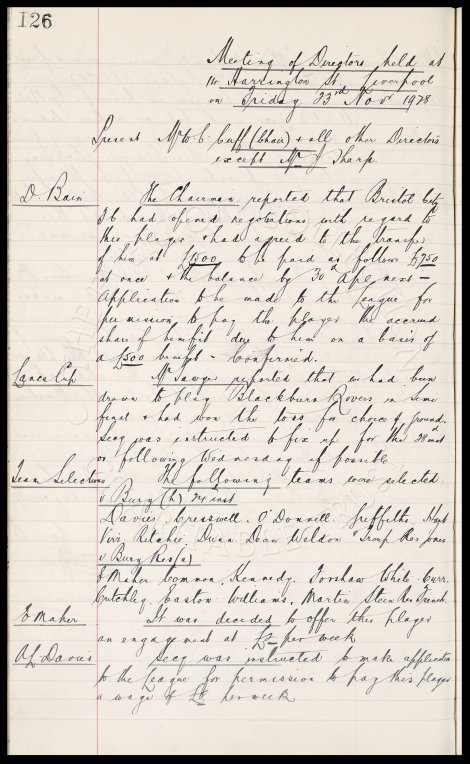 126
Meeting of Directors held at
14 Harrington St Liverpool
on Friday 23rd Novr 1928
Present Mr W. C. Cuff (Chair) & all other Directors
except Mr J Sharp.
D. Bain The Chairman reported that Bristol City
F.C. had opened negotiations with regard to
this player & had agreed to the transfer
of him at £1500 to be paid as follows £750
at once & the balance by 30th Apl next -
Application to be made to the League for
permission to pay the player the accrued
share of benefit due to him on a basis of
a £500 benefit - Confirmed.
Lancs Cup Mr Sawyer reported that we had been
drawn to play Blackburn Rovers in semi
final & had won the toss for choice of ground.
Secy was instructed to fix up for the 28th inst
or following Wednesday if possible
Team Selections The following teams were selected.
v Bury (h) 24th inst
Davies. Cresswell. O'Donnell. Griffiths, Hart
Virr, Ritchie, Dunn, Dean Weldon Troup Res Jones
v Bury Res (a)
E Maher Common. Kennedy. Forshaw White. Curr.
Critchley. Easton. Williams, Martin Stein Res French.
E Maher It was decided to offer this player
an engagement at per week
A L Davies Secy was instructed to make application
to the League for permission to pay this player
a wage of £8 per week